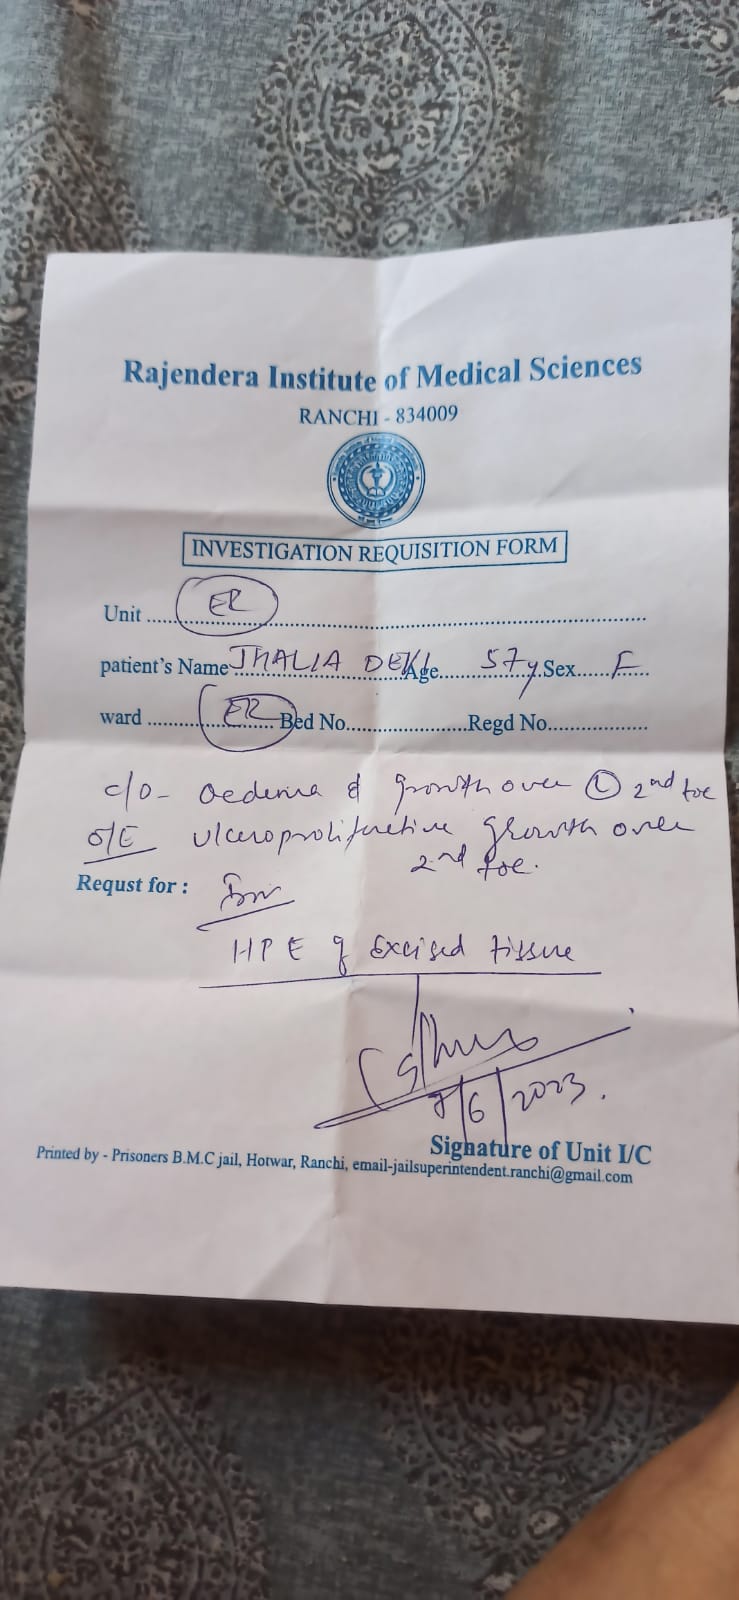 Rajendera Institute of Medical Sciences
RANCHI - 834009
INVESTIGATION REQUISITION FORM
Unit ..... ER ..........
patient's Name JHALIA DEVI Age 57y Sex F
ward .......... ER ..... Bed No.................... Regd No...................
c/o - Oedema & growth over (L) 2nd toe
O/E ulceroproliferative growth over
2nd toe.
Requst for :
HPE of Excised tissue
/6/2023.
Signature of Unit I/C
Printed by - Prisoners B.M.C jail, Hotwar, Ranchi, email-jailsuperintendent.ranchi@gmail.com